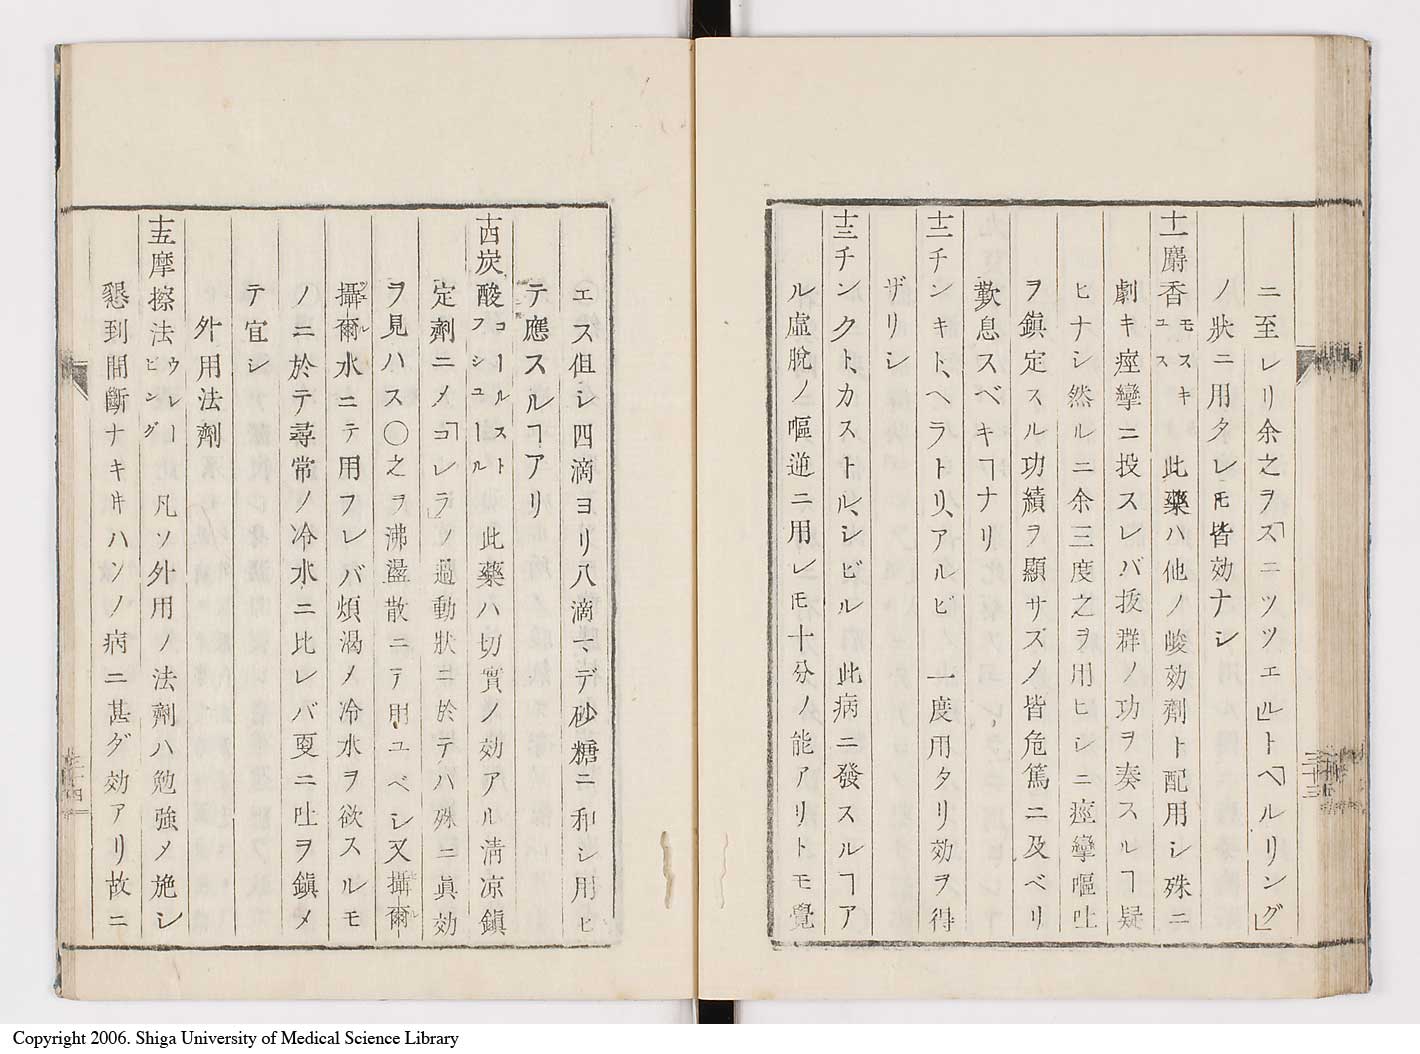 ニ至レリ余之ヲス「ニツツェル」ト「ヘルリング」
ノ狀ニ用タレ𪜈皆効ナシ
十一麝香モスキユス 此藥ハ他ノ峻効劑ト配用シ殊ニ
劇キ痙攣ニ投スレバ抜群ノ功ヲ奏スルヿ疑
ヒナシ然ルニ余三度之ヲ用ヒシニ痙攣嘔吐
ヲ鎮定スル功績ヲ顯サズメ皆危篤ニ及ベリ
歎息スベキヿナリ
十二チンキト、ヘラトリ、アルビ 一度用タリ効ヲ得
ザリシ
十三チンクト、カストル、シビル 此病ニ發スルヿア
ル虛脫ノ嘔逆ニ用レ𪜈十分ノ能アリトモ覺
三十三
エス但シ四滴ヨリ八滴マデ砂糖ニ和シ用ヒ
テ應スルヿアリ
十四炭酸コールストフシユール 此藥ハ切實ノ効アル淸凉鎮
定劑ニメ「コレラ」ノ過動狀ニ於テハ殊ニ眞効
ヲ見ハス〇之ヲ沸盪散ニテ用ユベシ又攝爾
攝爾水ニテ用フレバ煩渴メ冷水ヲ欲スルモ
ノニ於テ尋常ノ冷水ニ比レバ更ニ吐ヲ鎮メ
テ宜シ
外用法劑
十五摩擦法ウレービング 凡ソ外用ノ法劑ハ勉強メ施シ
懇到間斷ナキ𪜈ハソノ病ニ甚ダ効アリ故ニ
三十四
Copyright 2006. Shiga University of Medical Science Library